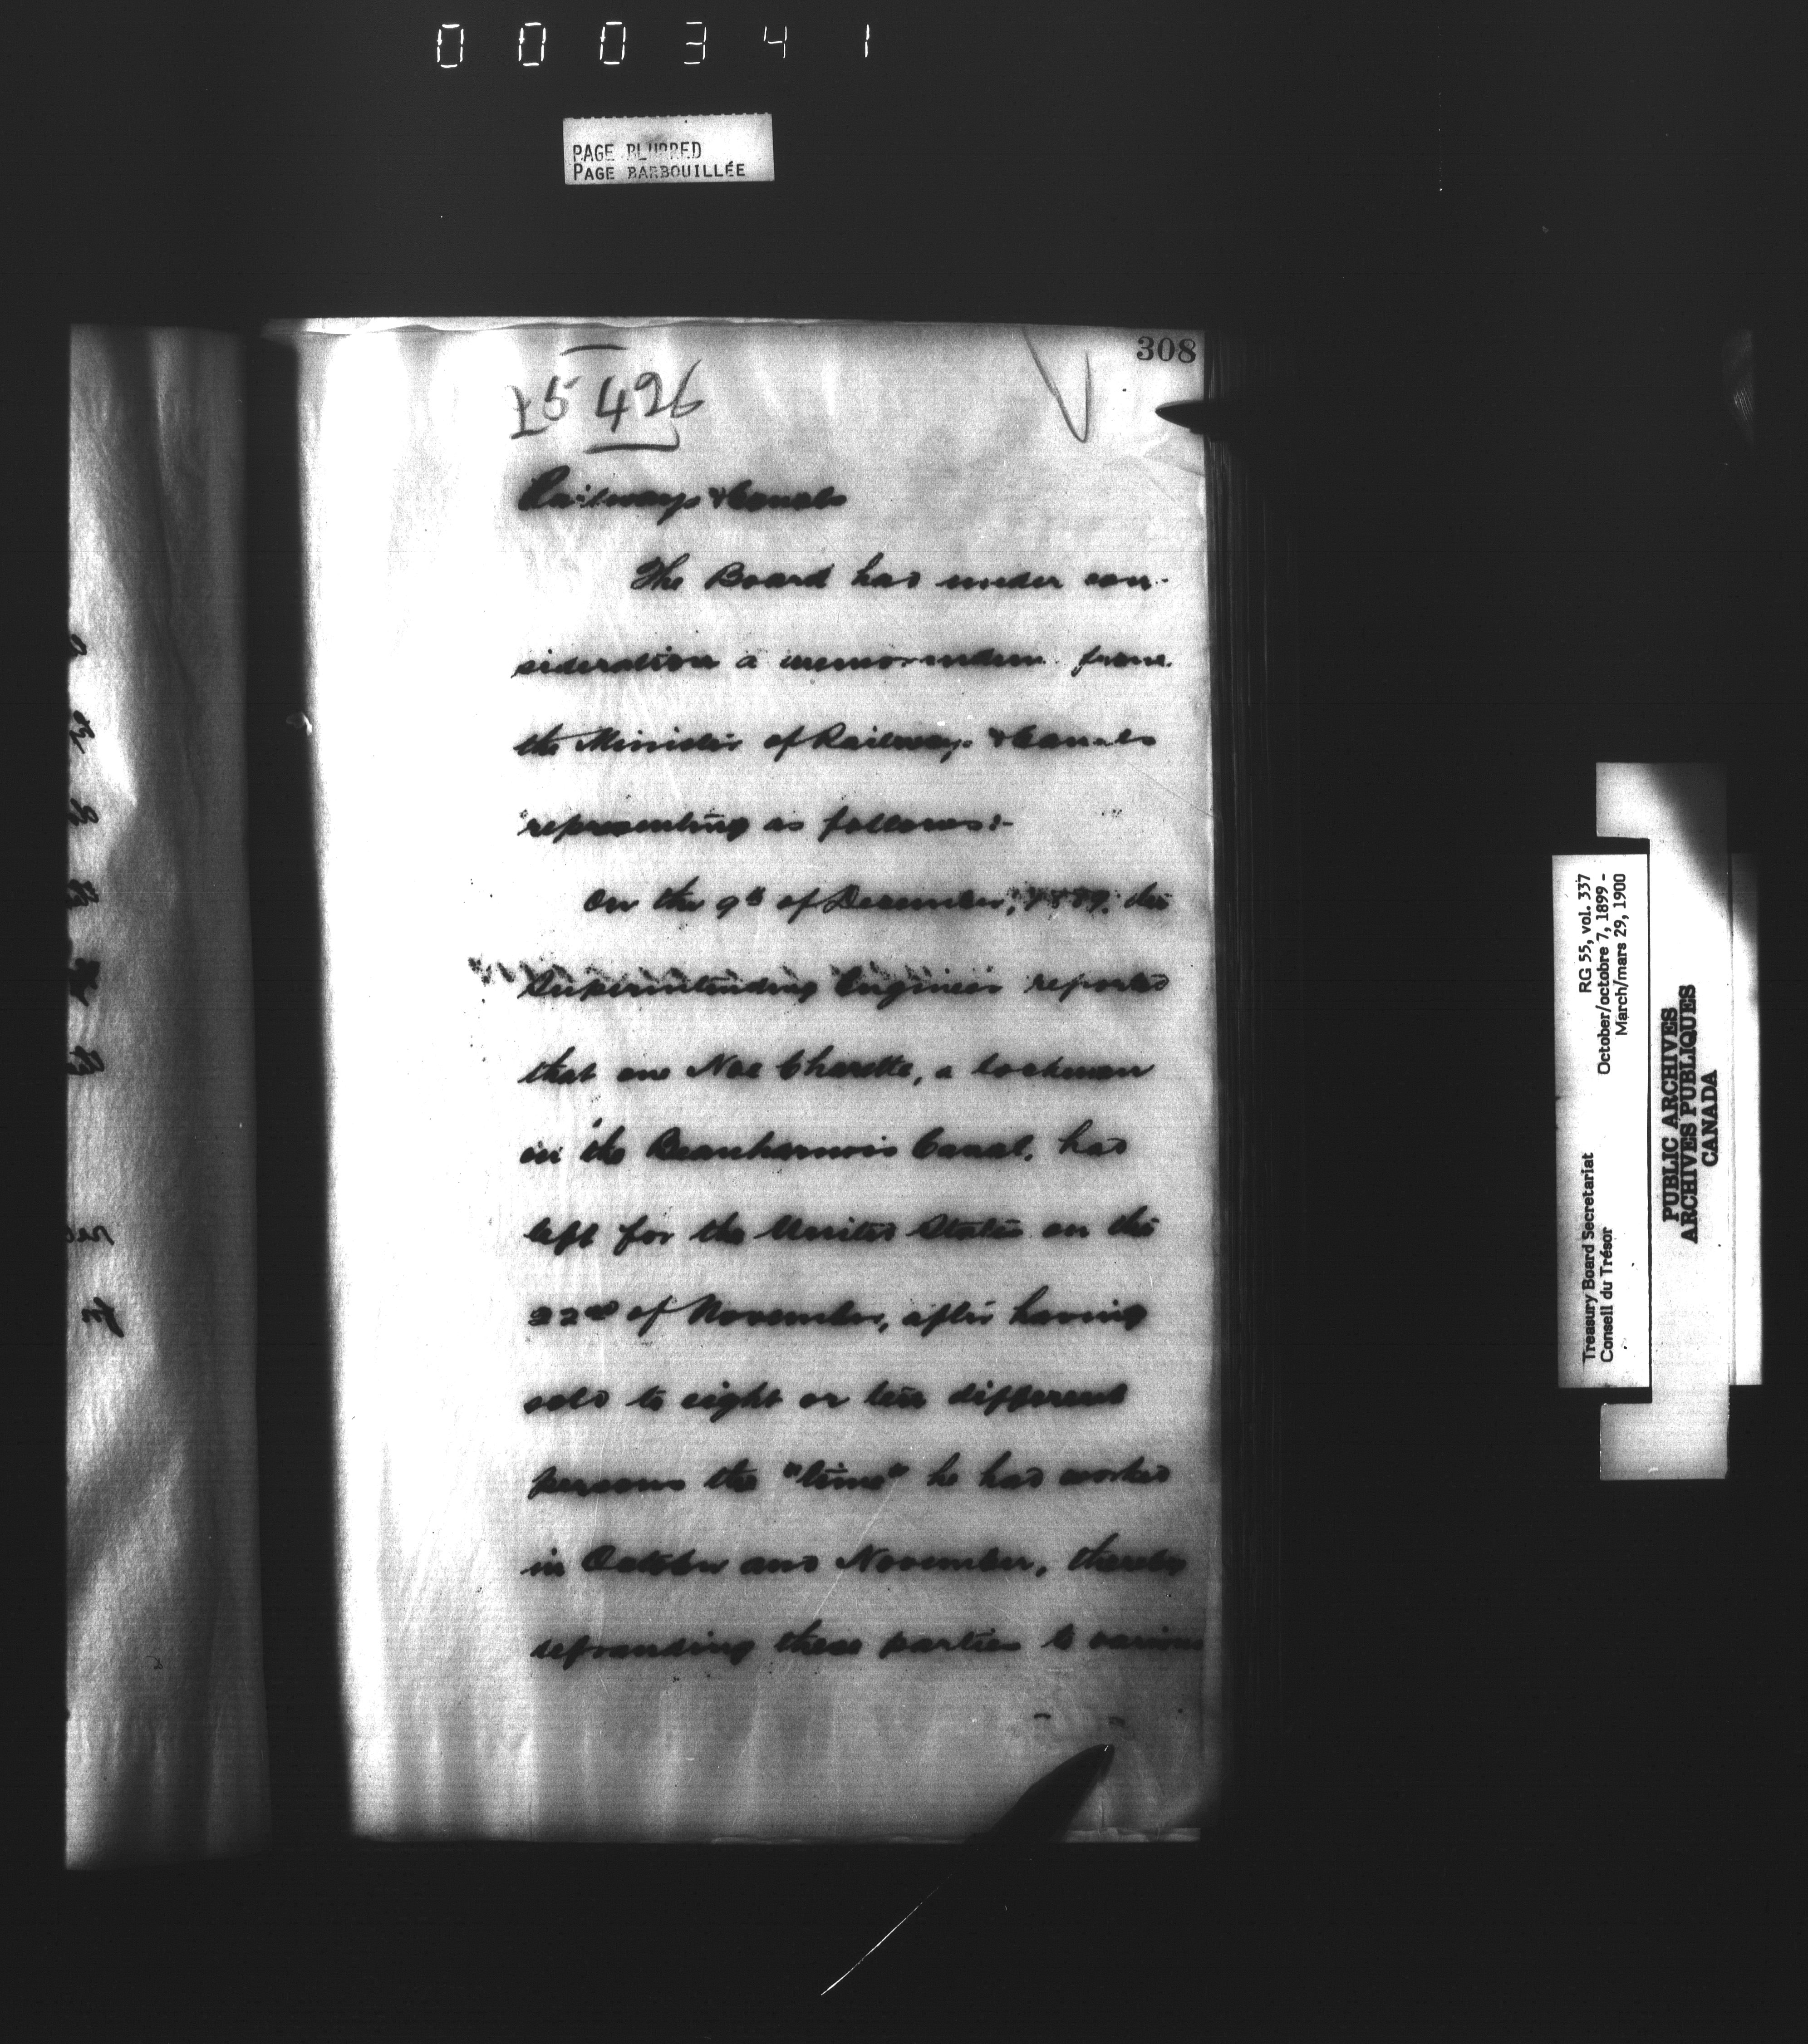 0 0 0 3 4 1
PAGE BLURRED
PAGE BARBOUILLÉE
308
15 496
Railways & Canals
The Board has under con-
sideration a memorandum from
the Minister of Railways & Canals
representing as follows:-
On the 9th of December, 1899, the
Superintending Engineer reported
that one Noe Charette, a lockman
in the Beauharnois Canal, has
left for the United States on the
22nd of November, after having
sold to eight or ten different
persons the "time" he had worked
in October and November, thereby
defrauding these parties to various
Treasury Board Secretariat RG 55, vol. 337
Conseil du Trésor October/octobre 7, 1899 -
March/mars 29, 1900
PUBLIC ARCHIVES
ARCHIVES PUBLIQUES
CANADA